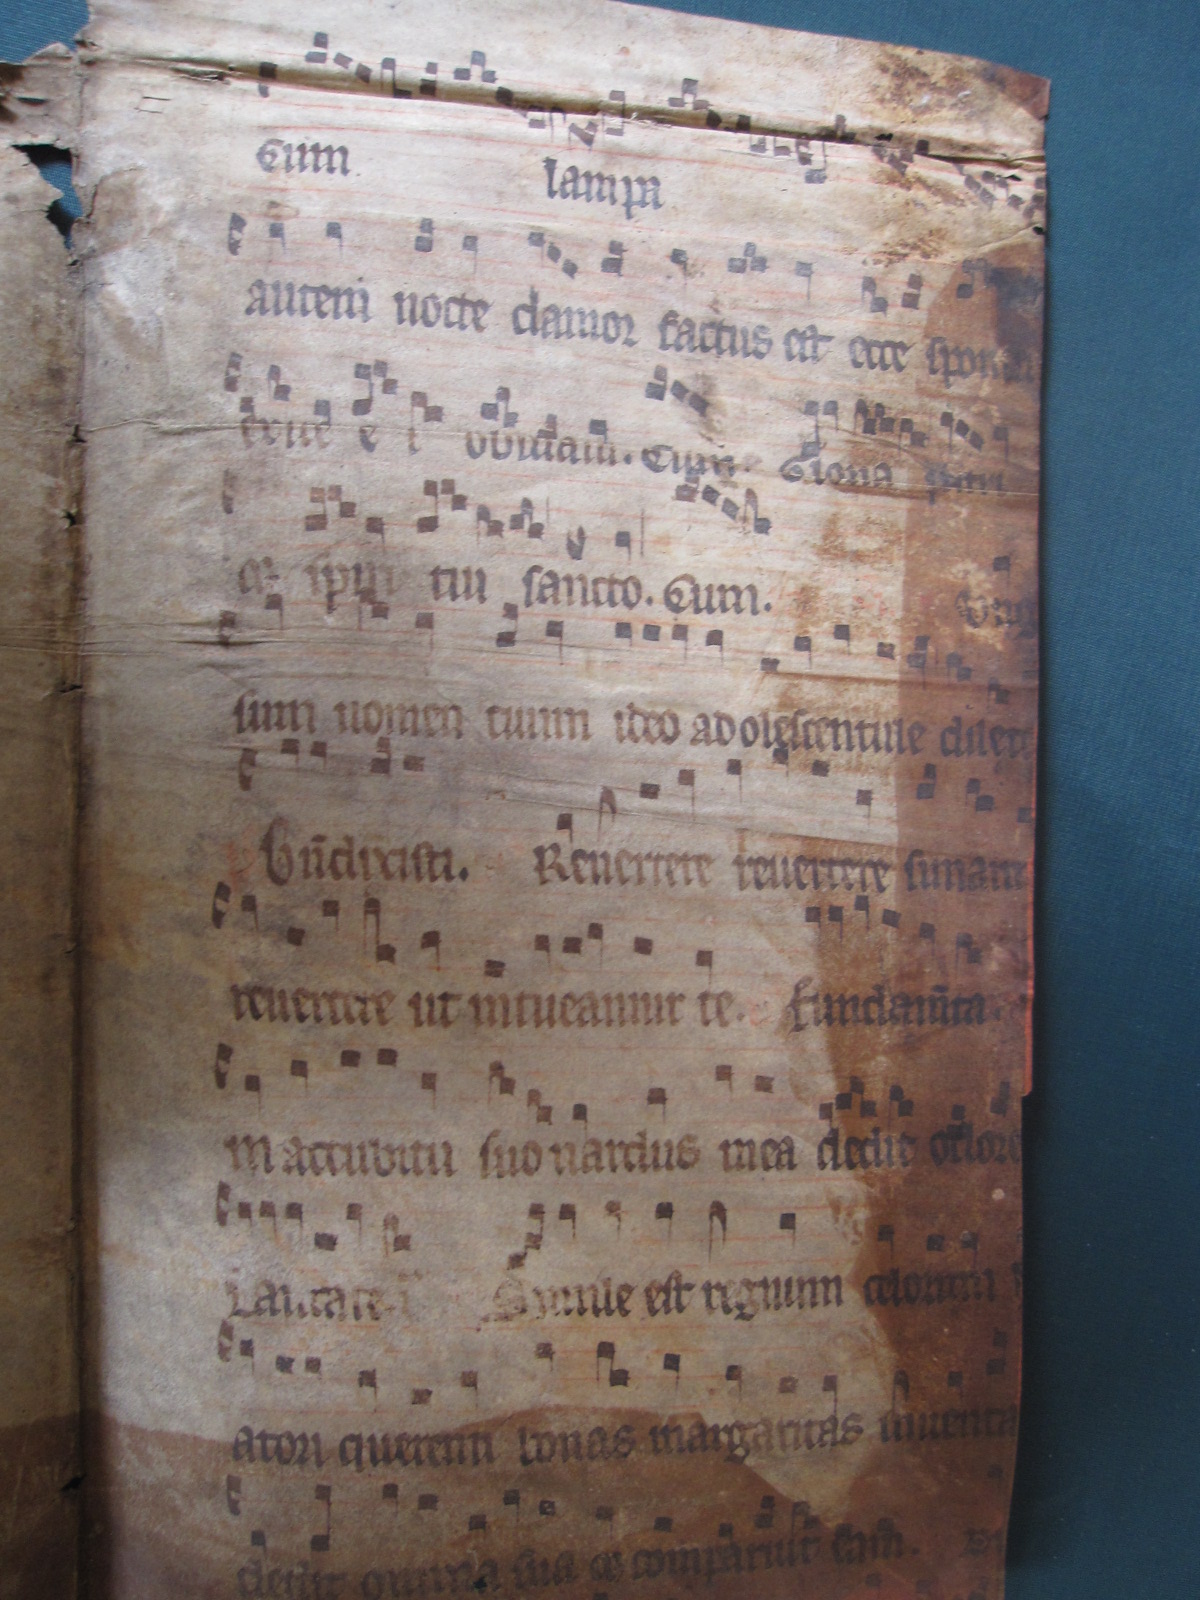 Cum lampa
autem nocte clamor factus est ecce spon
obuiam. Cum. Gloria patri
et spiri tui sancto. Cum.
sum nomen tuum ideo adolescentule dilexe
Bñdixisti. Reuertere reuertere sunami
reuertere ut intueamur te. Fundam̄ta
in accubitu suo nardus mea dedit odore
Laudate. Simile est regnum celorum
atori querenti bonas margaritas inuenta
dedit omnia sua et comparauit eam.